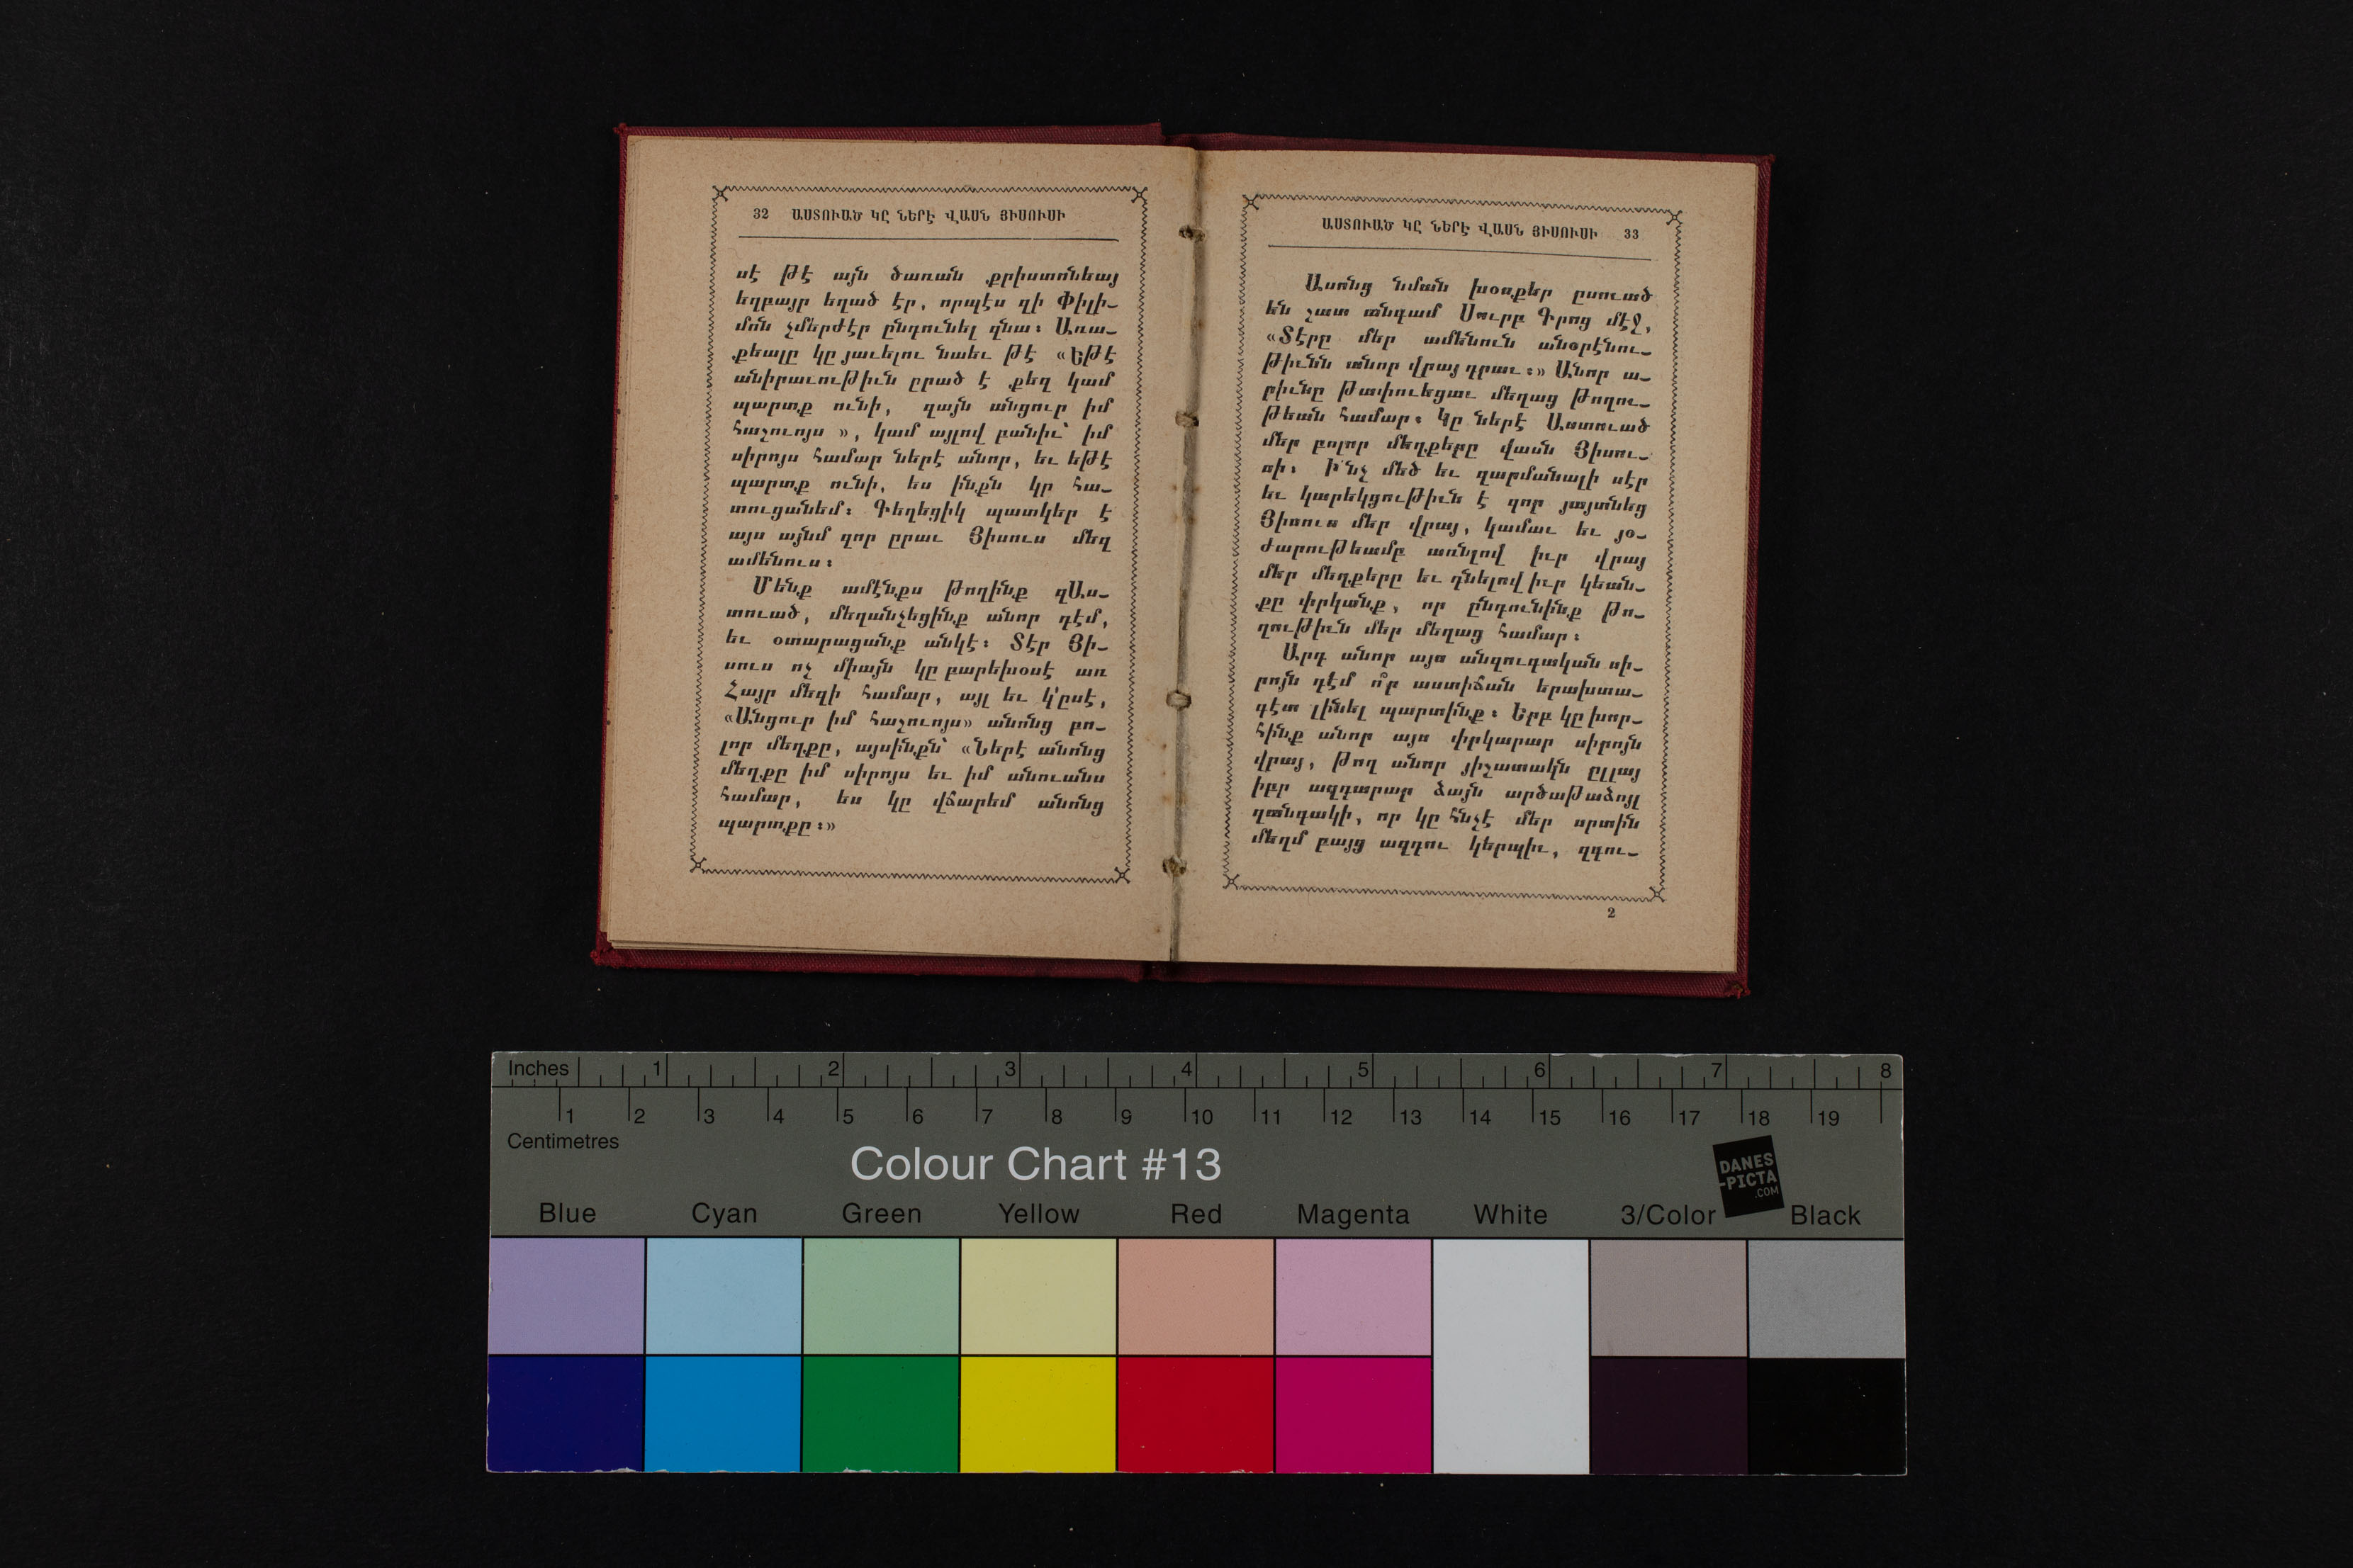 32 ԱՍՏՈՒԱԾ ԿԸ ՆԵՐԷ ՎԱՍՆ ՅԻՍՈՒՍԻ
սէ թէ այն ծառան քրիստոնեայ
եղբայր եղած էր, որպէս զի Փիլի-
մոն չմերժէր ընդունել զնա։ Առա-
քեալը կը յաւելու նաեւ թէ «Եթէ
անիրաւութիւն ըրած է քեզ կամ
պարտք ունի, զայն անցուր իմ
հաշուոյս», կամ այլով բանիւ՝ իմ
սիրոյս համար ներէ անոր, եւ եթէ
պարտք ունի, ես ինքն կը հա-
տուցանեմ։ Գեղեցիկ պատկեր է
այս այնմ զոր ըրաւ Յիսուս մեզ
ամենուս։
Մենք ամէնքս թողինք զԱս-
տուած, մեղանչեցինք անոր դէմ,
եւ օտարացանք անկէ։ Տէր Յի-
սուս ոչ միայն կը բարեխօսէ առ
Հայր մեղի համար, այլ եւ կ՚ըսէ,
«Անցուր իմ հաշուոյս» անոնց բո-
լոր մեղքը, այսինքն՝ «Ներէ անոնց
մեղքը իմ սիրոյս եւ իմ անուանս
համար, ես կը վճարեմ անոնց
պարտքը։»
ԱՍՏՈՒԱԾ ԿԸ ՆԵՐԷ ՎԱՍՆ ՅԻՍՈՒՍԻ 33
Ասոնց նման խօսքեր ըսուած
են շատ անգամ Սուրբ Գրոց մէջ,
«Տէրը մեր ամենուն անօրէնու-
թիւնն անոր վրայ դրաւ։» Անոր ա-
րիւնը թափուեցաւ մեղաց թողու-
թեան համար։ Կը ներէ Աստուած
մեր բոլոր մեղքերը վասն Յիսու-
սի։ Ի՜նչ մեծ եւ զարմանալի սէր
եւ կարեկցութիւն է զոր յայտնեց
Յիսուս մեր վրայ, կամաւ եւ յօ-
ժարութեամբ առնլով իւր վրայ
մեր մեղքերը եւ դնելով իւր կեան-
քը փրկանք, որ ընդունինք թո-
ղութիւն մեր մեղաց համար։
Արդ անոր այս անզուգական սի-
րոյն դէմ ո՞ր աստիճան երախտա-
գէտ լինել պարտինք։ Երբ կը խոր-
հինք անոր այս փրկարար սիրոյն
վրայ, թող անոր յիշատակն ըլլայ
իբր ազդարար ձայն արծաթաձոյլ
զանգակի, որ կը հնչէ մեր սրտին
մեղմ բայց ազդու կերպիւ, զգու-
2
Inches 1 2 3 4 5 6 7 8
1 2 3 4 5 6 7 8 9 10 11 12 13 14 15 16 17 18 19
Centimetres
Colour Chart #13
DANES
-PICTA
.COM
Blue Cyan Green Yellow Red Magenta White 3/Color Black